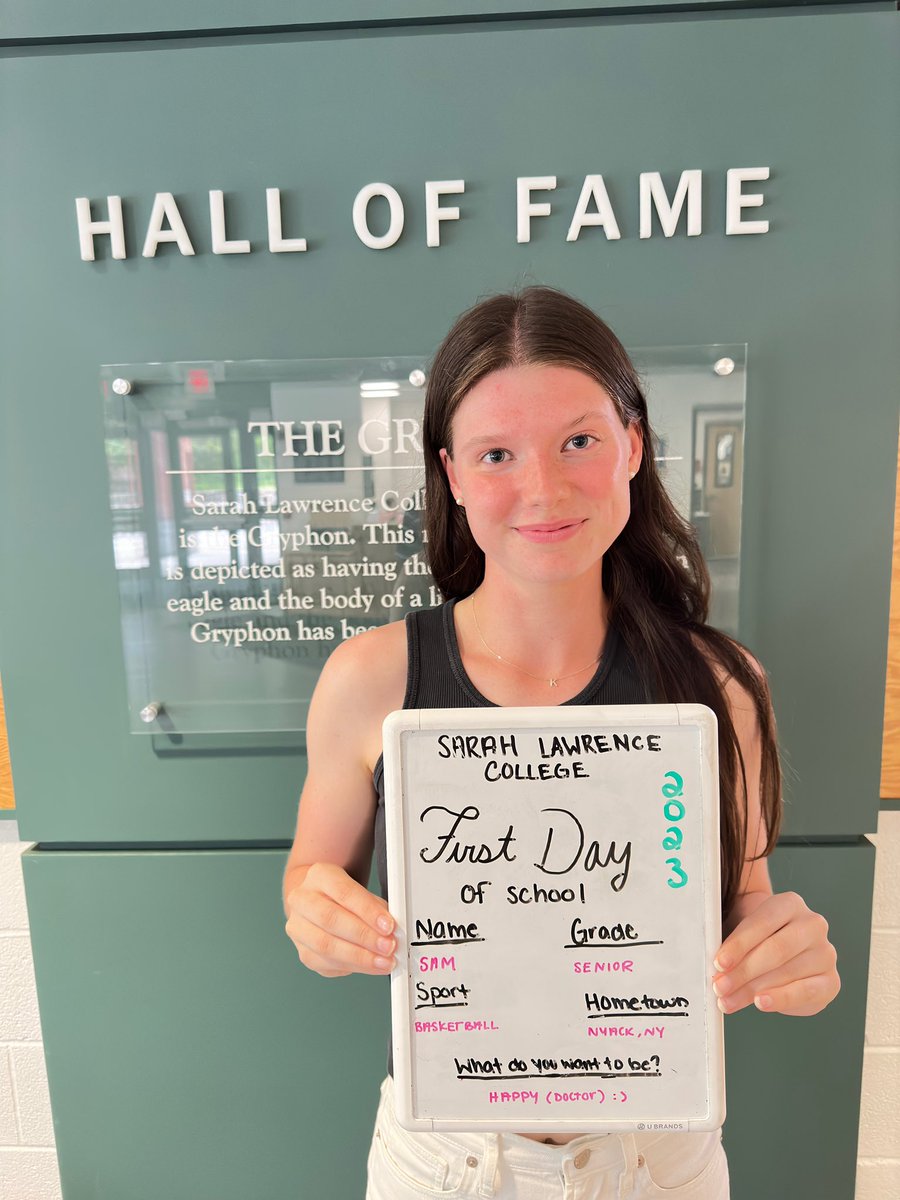 HALL OF FAME
THE
Sarah Lawrence
is the Gryphon. This
is depicted as having the
eagle and the body of a
Gryphon has
K
SARAH LAWRENCE
COLLEGE
2023
First Day
OF SCHOOL
Name
Grade
SAM
SENIOR
Sport
Hometown
BASKETBALL
NYACK, NY
What do you want to be?
HAPPY (DOCTOR) :)
U BRANDS